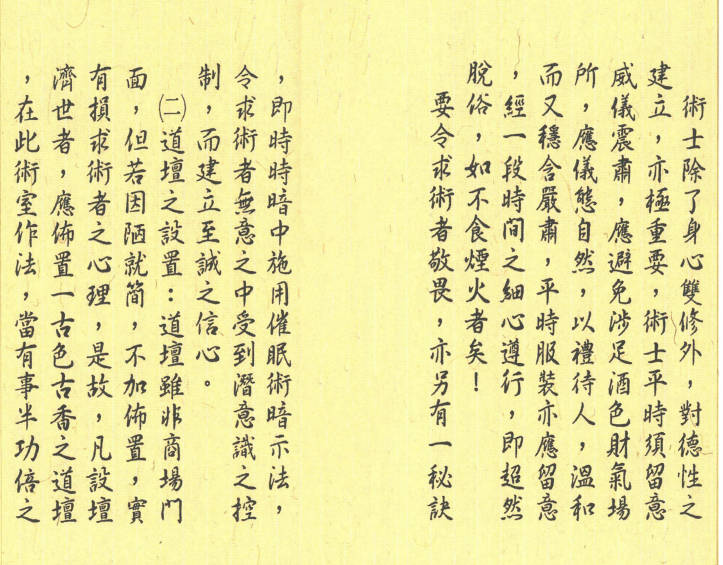 術士除了身心雙修外，對德性之
建立，亦極重要，術士平時須留意
威儀震肅，應避免涉足酒色財氣場
所，應儀態自然，以禮待人，溫和
而又穩含嚴肅，平時服裝亦應留意
，經一段時间之細心遵行，即超然
脫俗，如不食煙火者矣！
要令求術者敬畏，亦另有一秘訣
，即時時暗中施用催眠術暗示法，
令求術者無意之中受到潛意識之控
制，而建立至誠之信心。
㈡道壇之設置：道壇雖非商場門
面，但若因陋就简，不加佈置，實
有損求術者之心理，是故，凡設壇
濟世者，應佈置一古色古香之道壇
，在此術室作法，當有事半功倍之